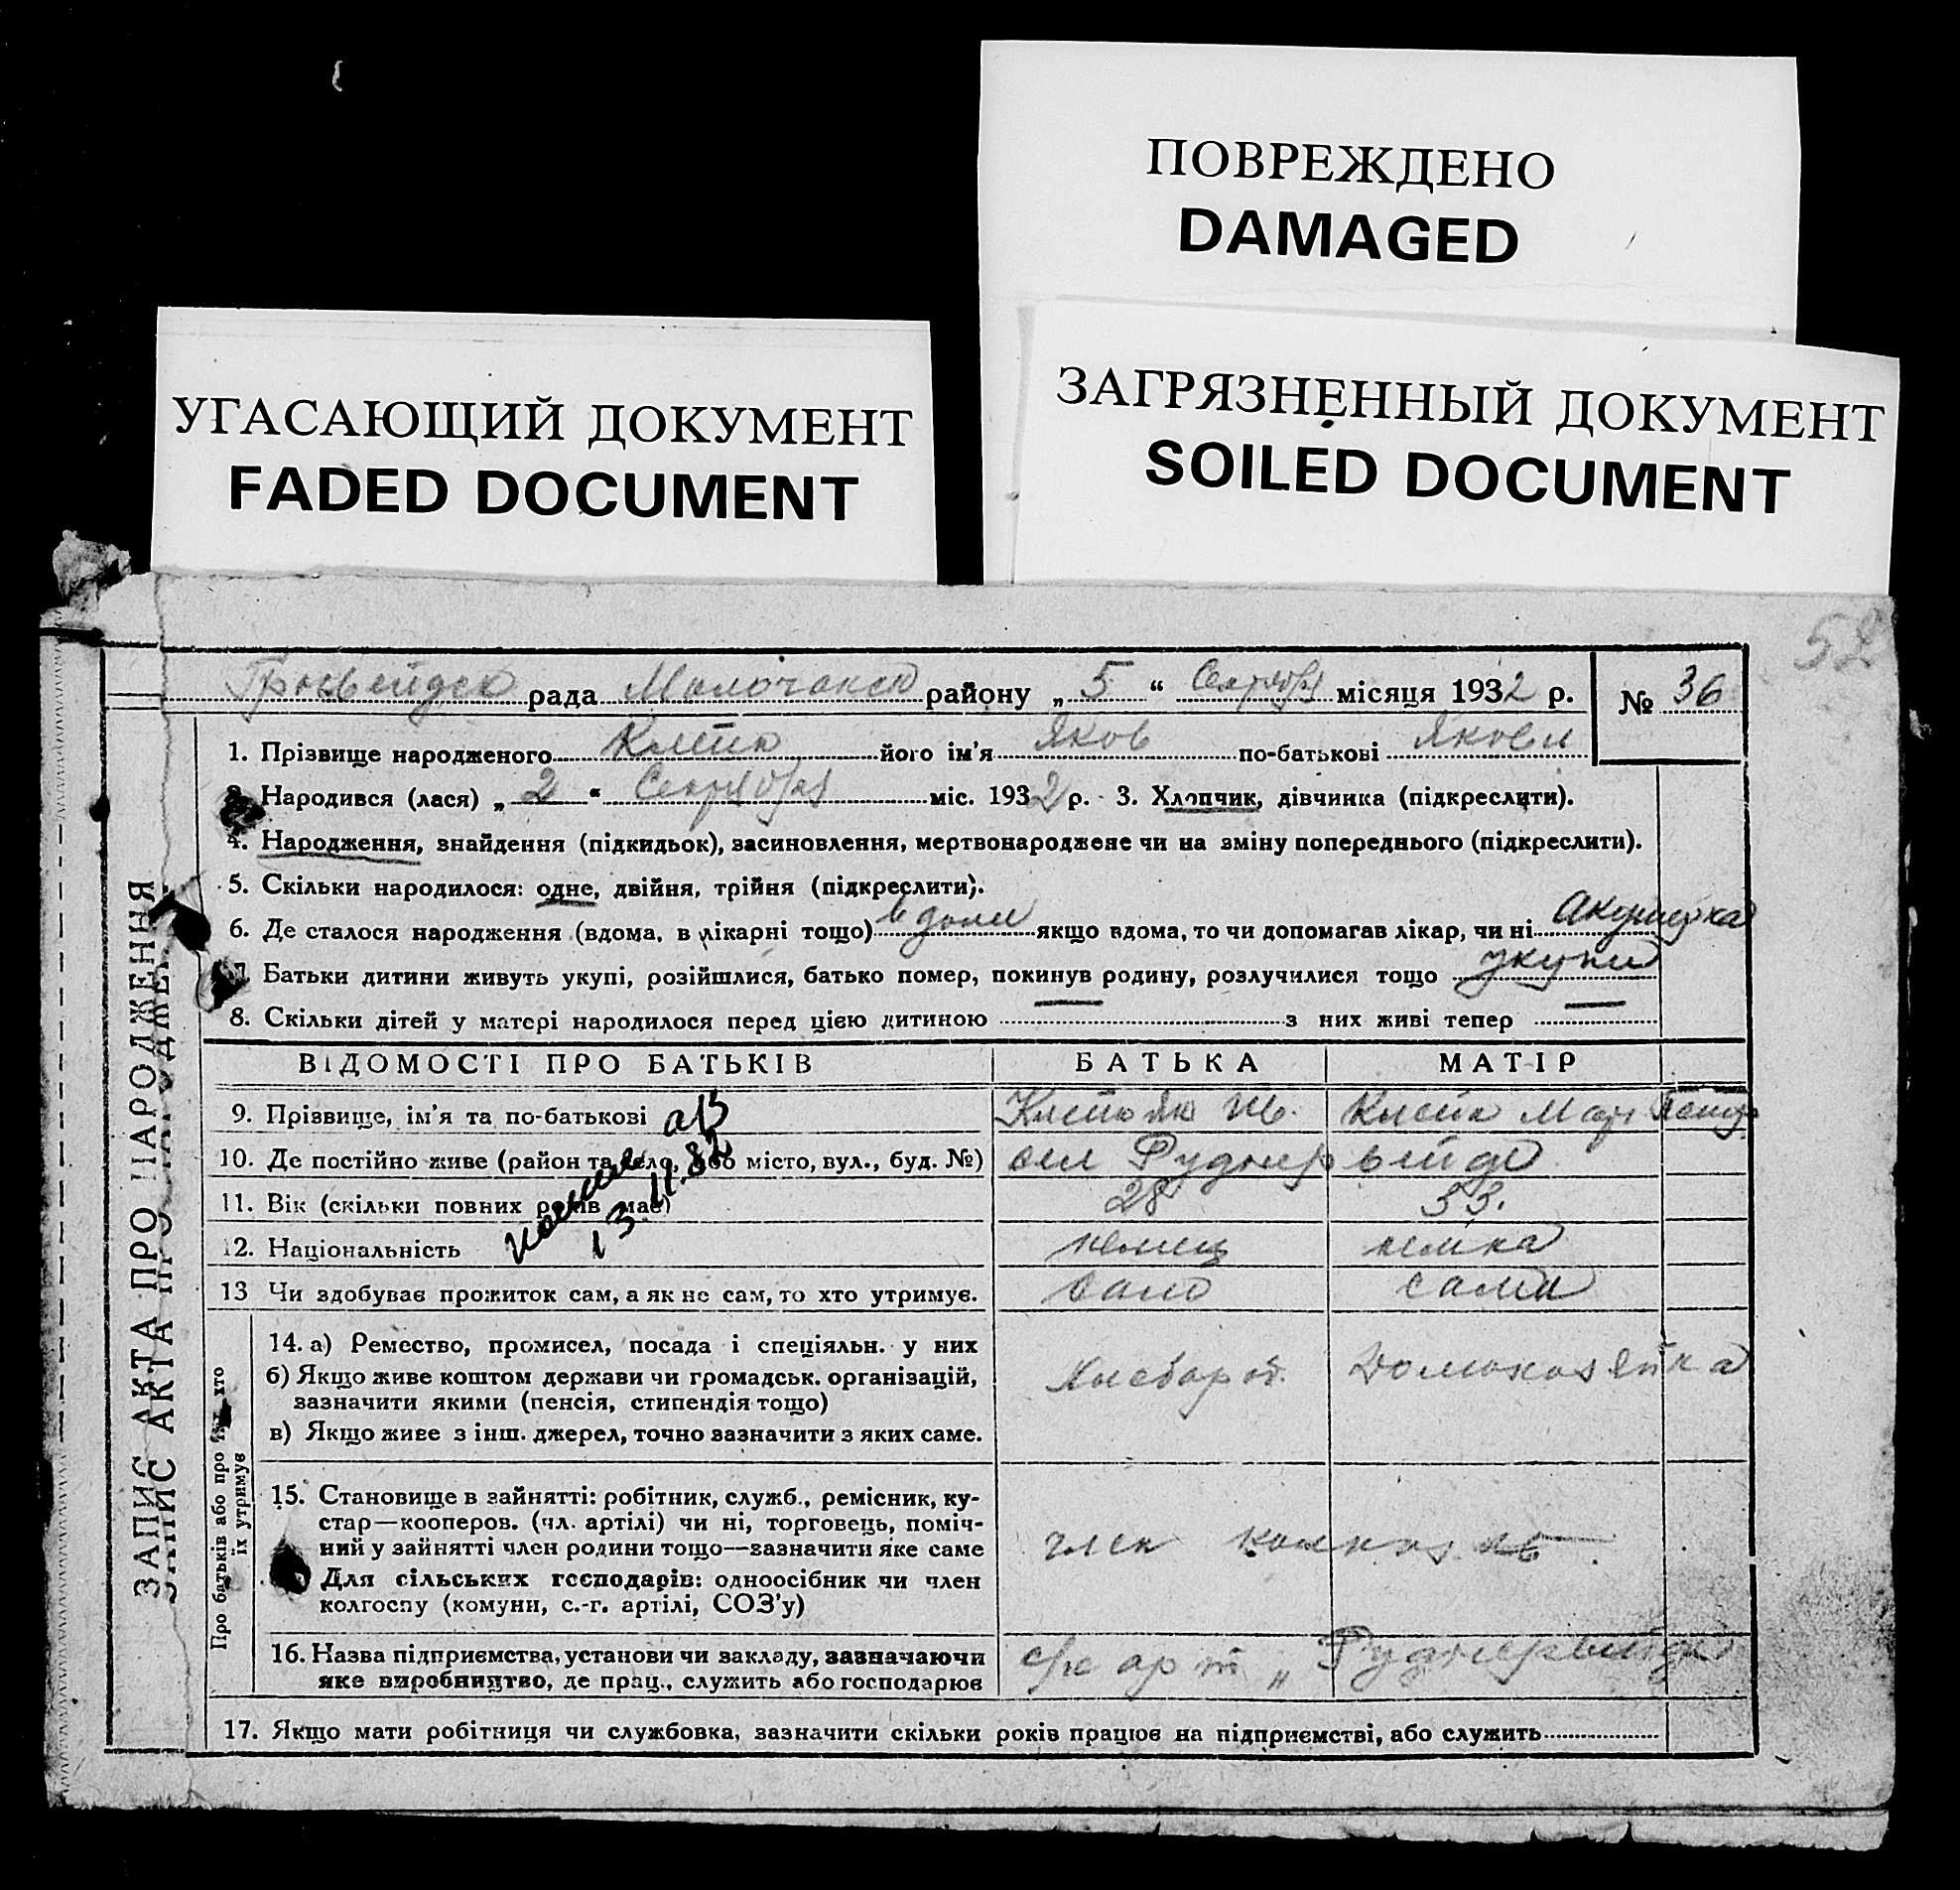 ПОВРЕЖДЕНО
DAMAGED
УГАСАЮЩИЙ ДОКУМЕНТ
FADED DOCUMENT
ЗАГРЯЗНЕННЫЙ ДОКУМЕНТ
SOILED DOCUMENT
52
рада Молочанск району „ 5 “ Сентября місяця 1932 р. № 36
1. Прізвище народженого його ім'я Яков по-батькові Якови
Народився (лася) „ 2 “ Сентября міс. 1932 р. 3. Хлопчик, дівчинка (підкреслити).
4. Народження, знайдення (підкидьок), засиновлення, мертвонароджене чи на зміну попереднього (підкреслити).
5. Скільки народилося: одне, двійня, трійня (підкреслити).
6. Де сталося народження (вдома, в лікарні тощо) вдома якщо вдома, то чи допомагав лікар, чи ні Акушерка
7 Батьки дитини живуть укупі, розійшлися, батько помер, покинув родину, розлучилися тощо укупи
8. Скільки дітей у матері народилося перед цією дитиною — з них живі тепер —
ВІДОМОСТІ ПРО БАТЬКІВ БАТЬКА МАТІР
9. Прізвище, ім'я та по-батькові
10. Де постійно живе (район та село, або місто, вул., буд. №) сел Руднервейде
11. Вік (скільки повних років має) 28 33.
13.11.82
12. Національність немец немка
13 Чи здобуває прожиток сам, а як не сам, то хто утримує. само сами
14. а) Ремество, промисел, посада і спеціяльн. у них
б) Якщо живе коштом держави чи громадськ. організацій,
зазначити якими (пенсія, стипендія тощо)
Домохозяйка
в) Якщо живе з інш. джерел, точно зазначити з яких саме.
15. Становище в зайнятті: робітник, служб., ремісник, ку-
стар—кооперов. (чл. артілі) чи ні, торговець, поміч-
ний у зайнятті член родини тощо—зазначити яке саме
член
Для сільських господарів: одноосібник чи член
колгоспу (комуни, с.-г. артілі, СОЗ'у)
16. Назва підприємства, установи чи закладу, зазначаючи
яке виробництво, де прац., служить або господарює
с/х арт „ Руднервейде
17. Якщо мати робітниця чи службовка, зазначити скільки років працює на підприємстві, або служить
Про батьків або про тих хто
їх утримує
ЗАПИС АКТА ПРО НАРОДЖЕННЯ
ЗАПИС АКТА ПРО